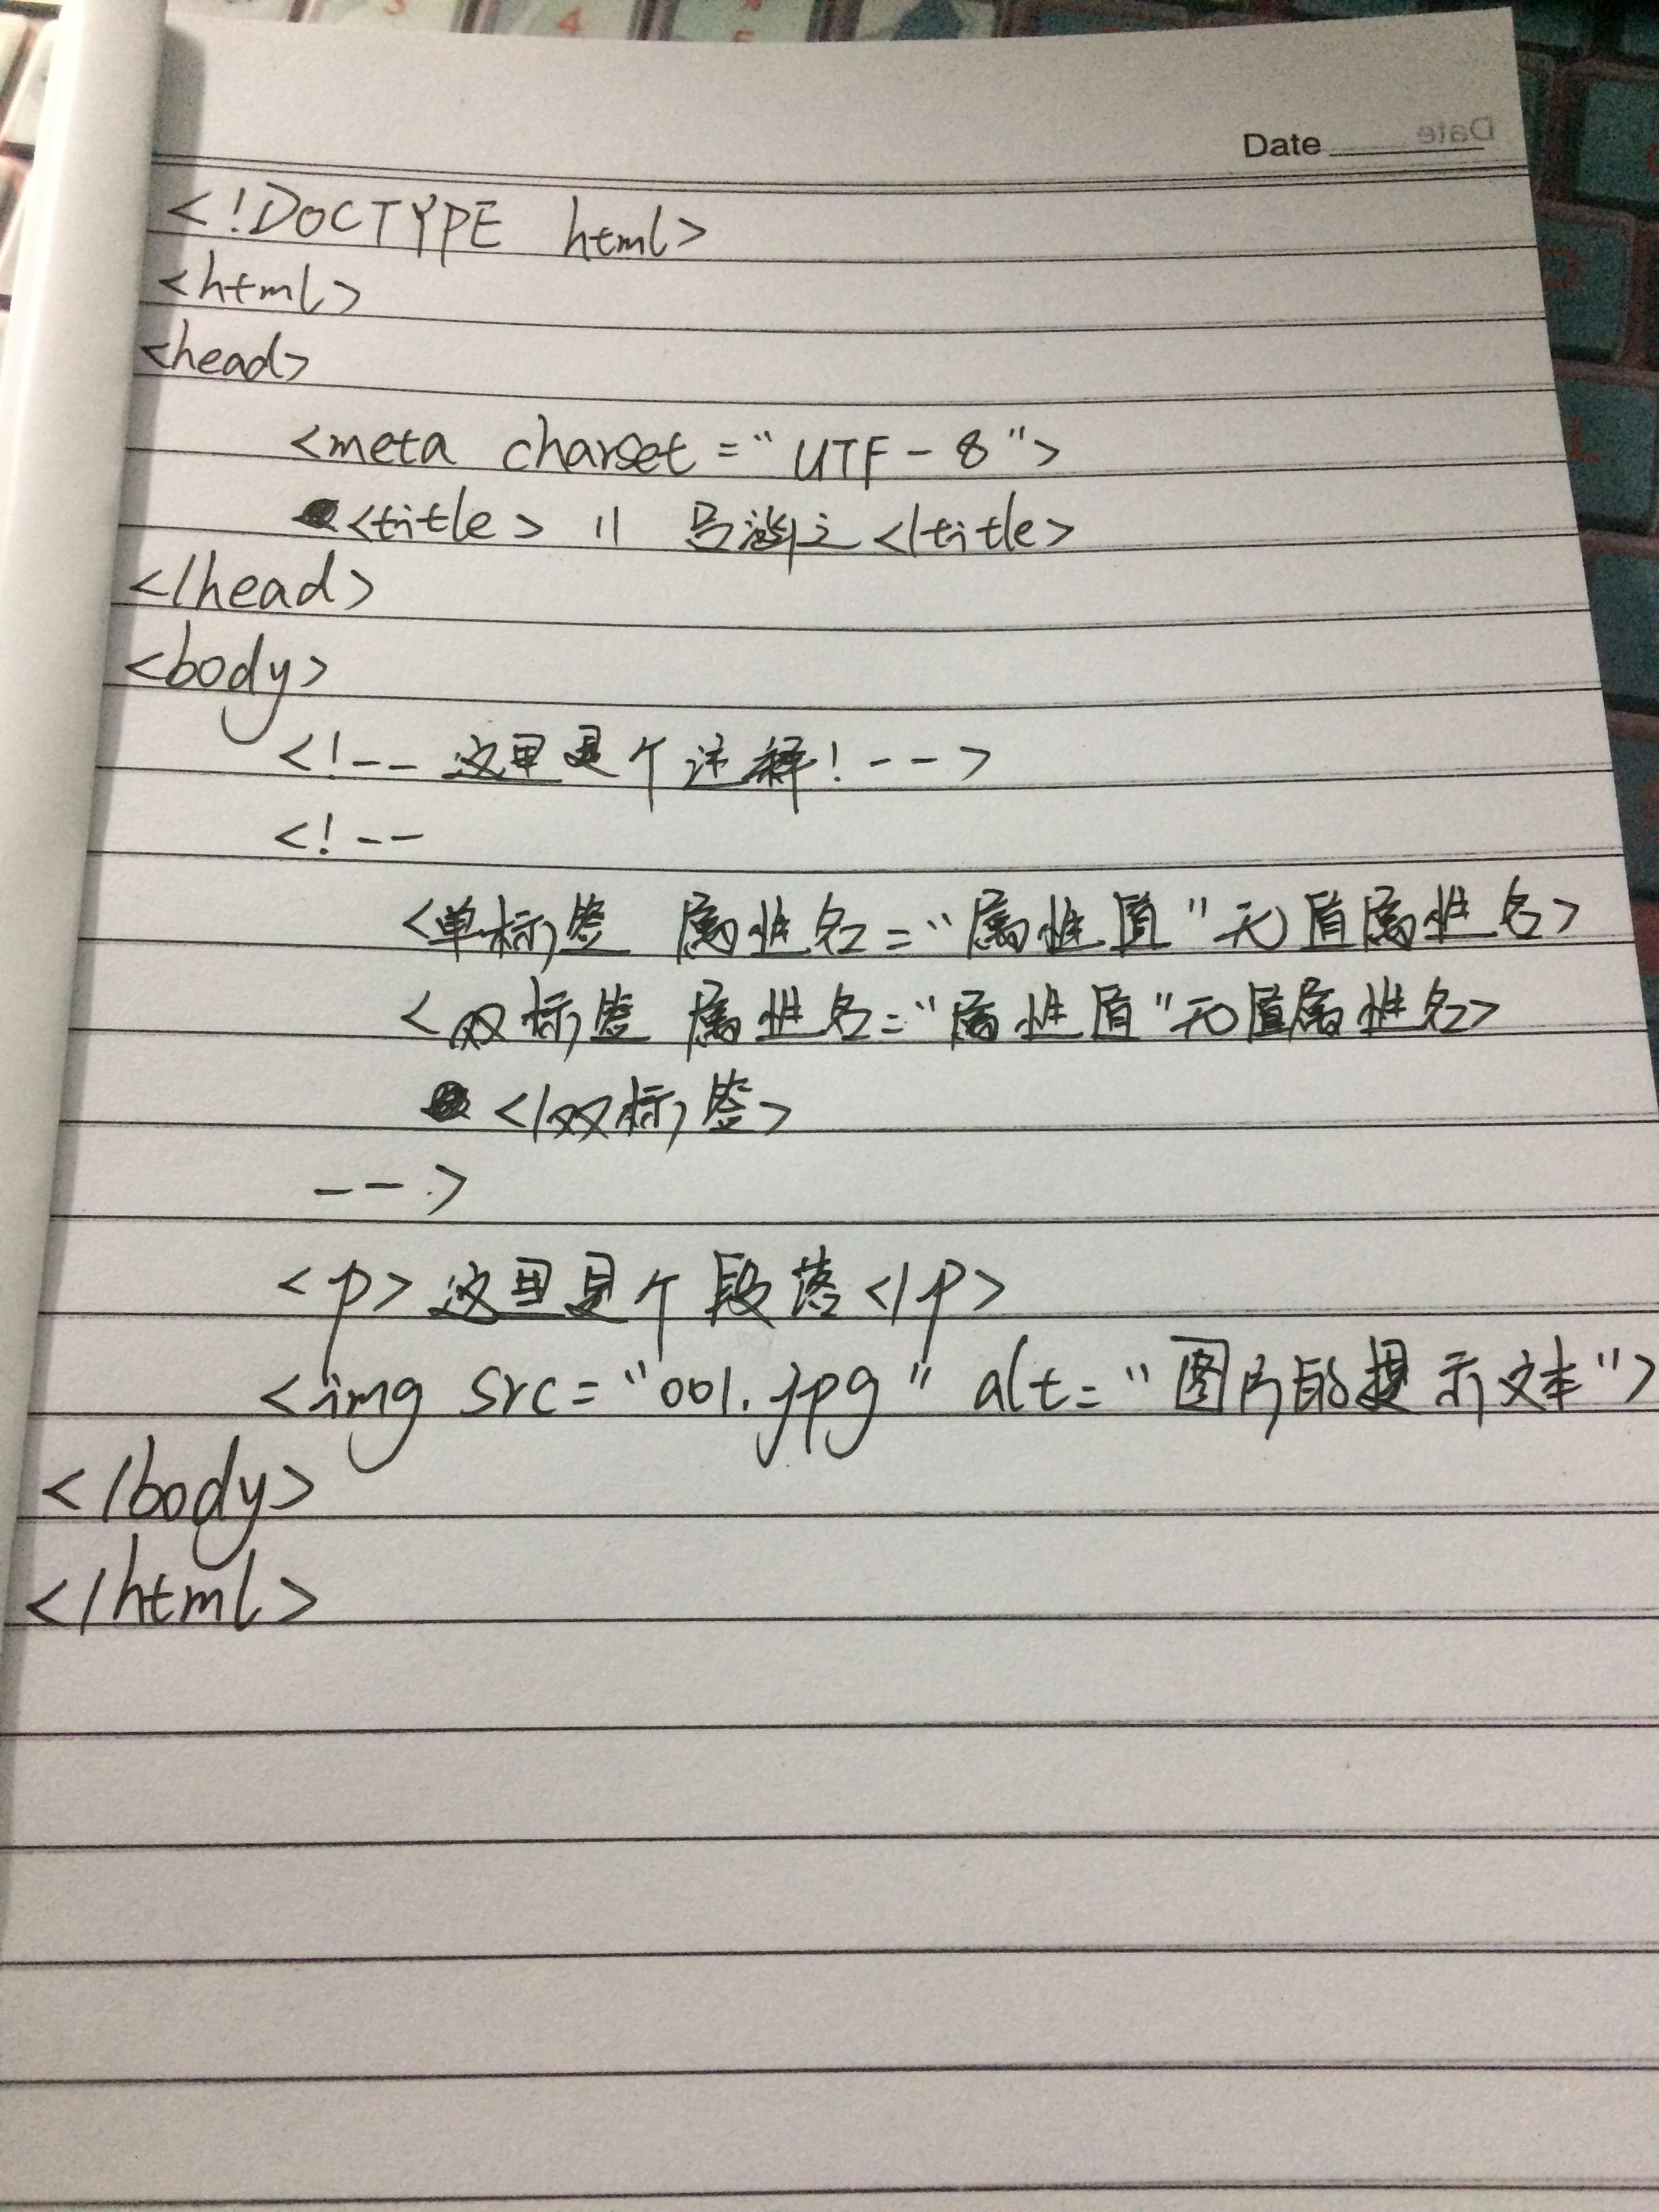 Date
<!DOCTYPE html>
<html>
<head>
<meta charset="UTF-8">
<title> 11 号 </title>
</head>
<body>
<!-- 这里是个注释! -->
<!--
<单标签 属性名="属性值" 无值属性名>
<双标签 属性名="属性值" 无值属性名>
</双标签>
-->
<p>这里是个段落</p>
<img src="001.jpg" alt="图片的提示文本">
</body>
</html>